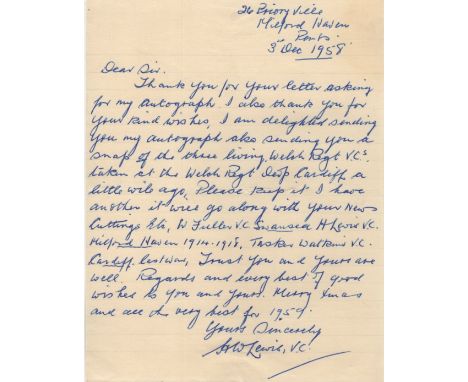 26 Priory Ville
Milford Haven
Pembs.
3rd Dec 1958
Dear Sir.
Thank you for your letter asking
for my autograph. I also thank you for
your kind wishes, I am delighted sending
you my autograph also sending you a
snap of the three living Welsh Regt V.Cs
taken at the Welsh Regt Depot Cardiff a
little wile ago, Please keep it I have
another it will go along with your News
Cuttings Etc, W Fuller V.C Swansea H Lewis V.C.
Milford Haven 1914-1918, Tasker Watkins V.C.
Cardiff last war, Trust you and yours are
well. Regards and every best of good
wishes to you and yours. Merry Xmas
and all the very best for 1959.
Yours Sincerely
Lewis, V.C.